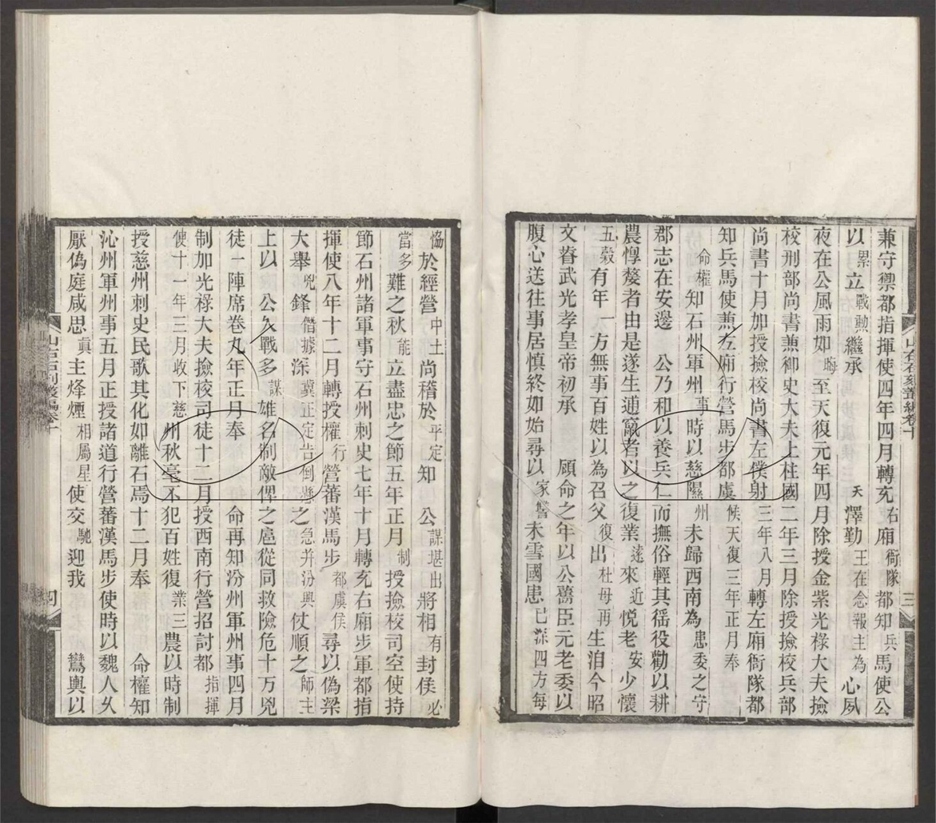 兼守禦都指揮使四年四月轉充右廂衙隊都知兵馬使公
以累立戰勲繼承 天澤勤王在念報主為心夙
夜在公風雨如晦至天復元年四月除授金紫光祿大夫撿
校刑部尚書兼御史大夫上柱國二年三月除授撿校兵部
尚書十月加授撿校尚書左僕射三年八月轉左廂衙隊都
知兵馬使兼左廂行營馬步都虞候天復三年正月奉
命權知石州軍州事時以慈隰州未歸西南為患委之守
郡志在安邊 公乃和以養兵仁而撫俗輕其徭役勸以耕
農惸嫠者由是遂生逋竄者以之復業遠來近悅老安少懷
五穀有年一方無事百姓以為召父復出杜母再生洎今昭
文睿武光孝皇帝初承 顧命之年以公舊臣元老委以
腹心送往事居慎終如始尋以家讐未雪國患已深四方每
恊於經營中土尚稽於平定知 公謀堪出將相有封侯必
當多難之秋能立盡忠之節五年正月 制授撿校司空使持
節石州諸軍事守石州刺史七年十月轉充右廂步軍都指
揮使八年十二月轉授權行營蕃漢馬步都虞侯尋以偽梁
大舉兇鋒僭據深冀正定告倒懸之急并汾興仗順之師主
上以 公久戰多謀雄名制敵俾之虛從同救險危十万兇
徒一陣席卷丸年正月奉 命再知汾州軍州事四月
制加光祿大夫撿校司徒十二月授西南行營招討都指揮
使十一年三月收下慈州秋毫不犯百姓復業三農以時制
授慈州刺史民歌其化如離石焉十二月奉 命權知
沁州軍州事五月正授諸道行營蕃漢馬步使時以魏人久
厭偽庭咸思真主烽煙相屬星使交馳迎我 鸞輿以
山右石刻叢編卷十
三
山右石刻叢編卷十
四